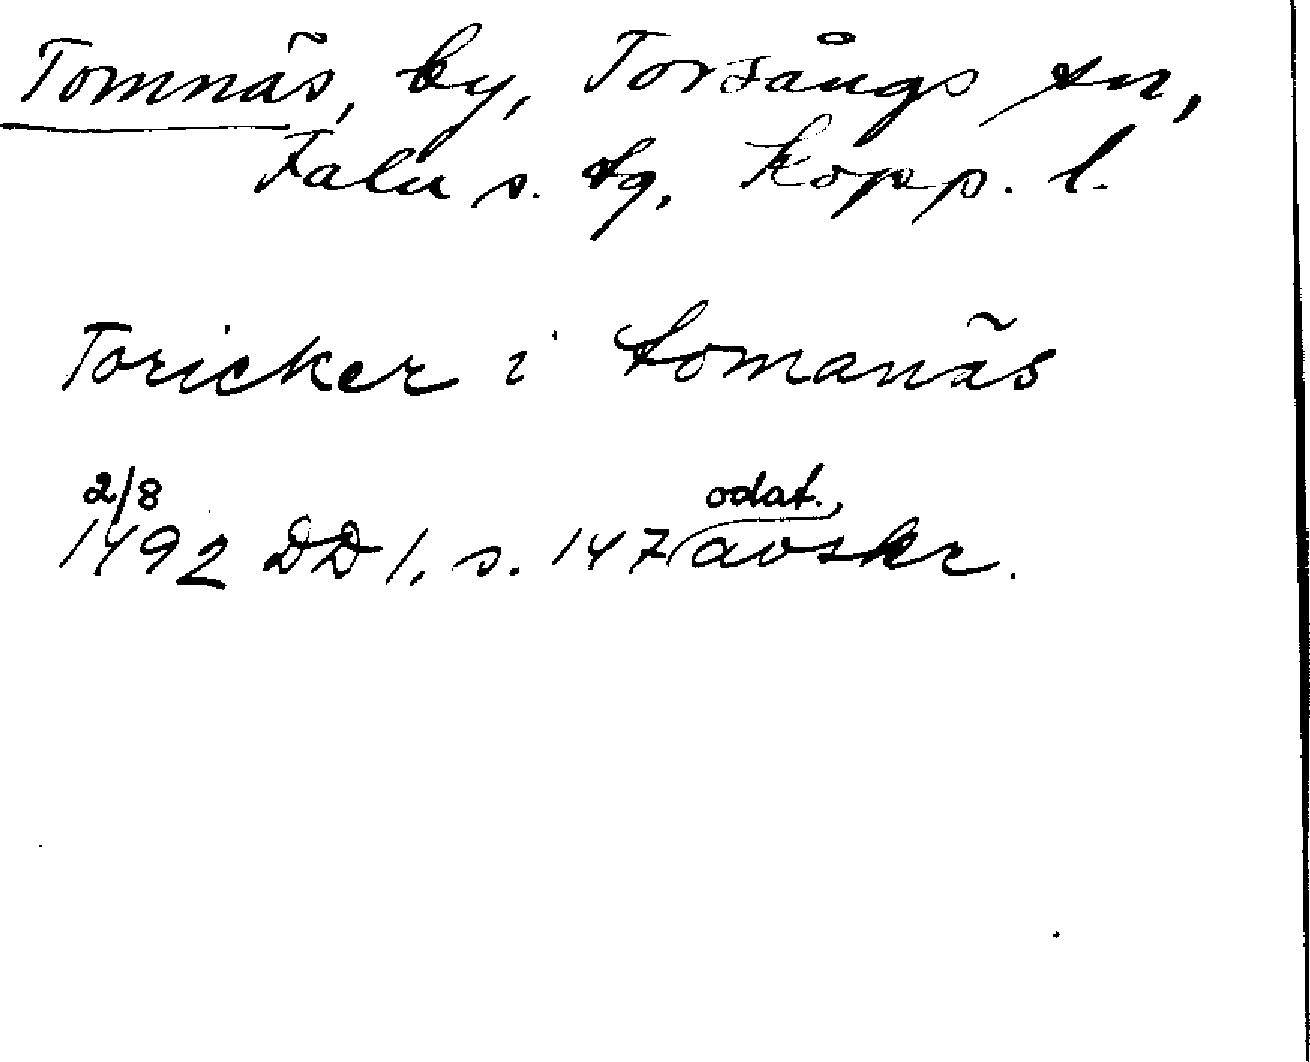 Tomnäs, by, Torsångs sn,
Falu s. tg, Kopp. l.
Toricker i tomanäs
2/8 odat.
1492 DD 1, s. 147 avskr.